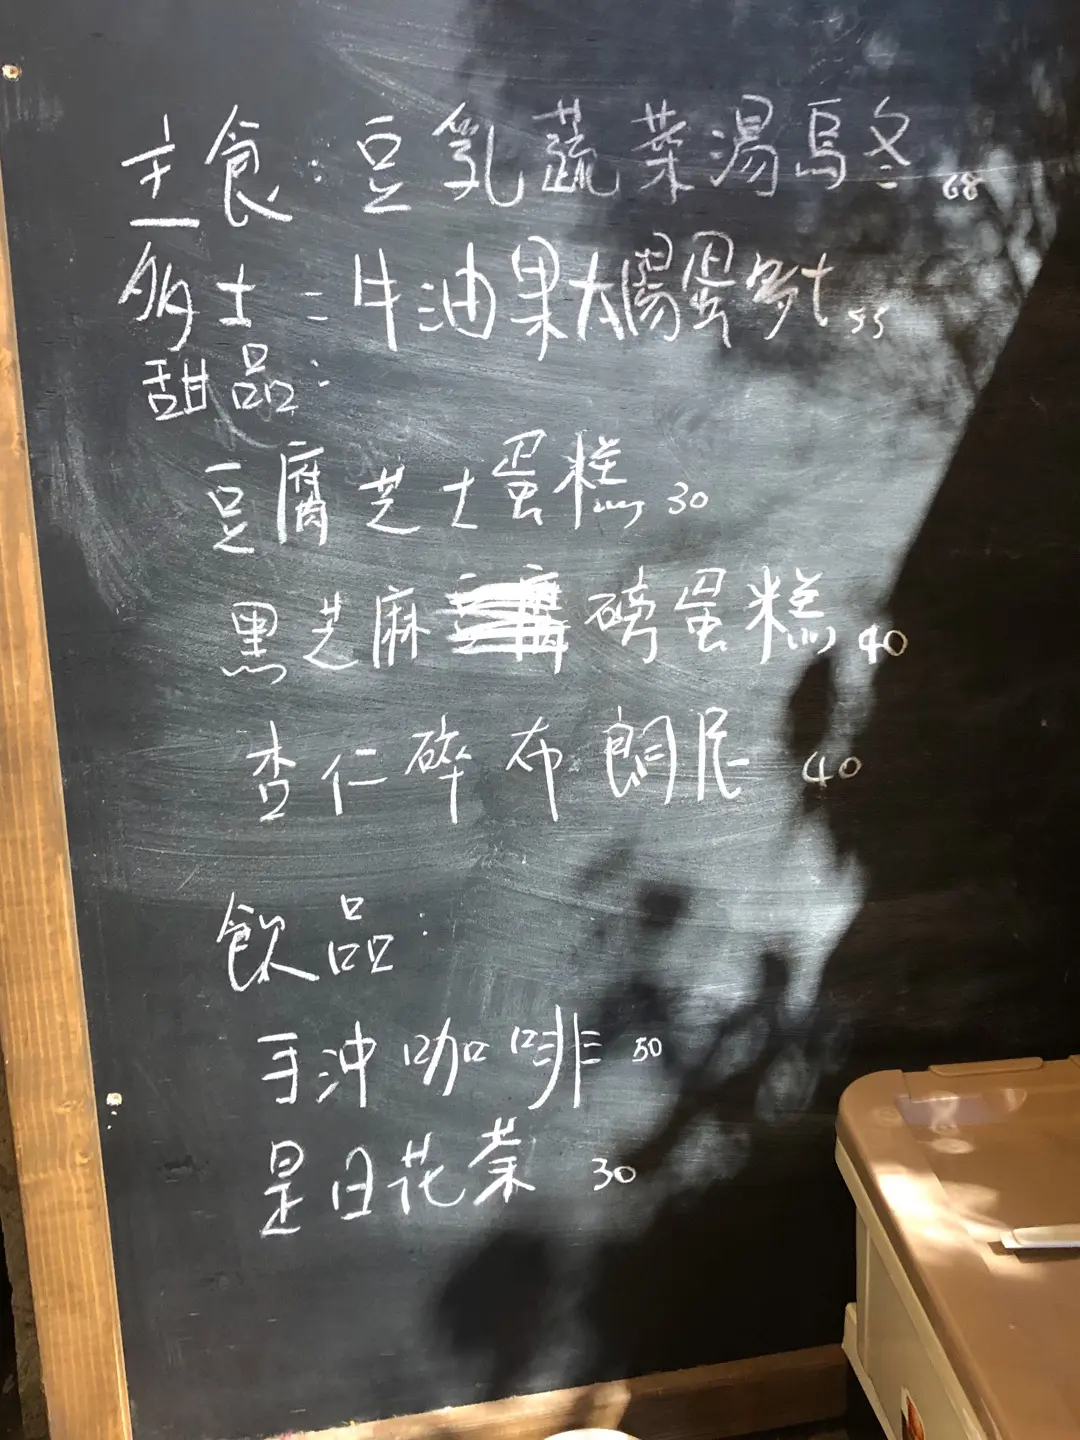 主食：豆乳蔬菜湯烏冬 68
多士：牛油果太陽蛋多士 55
甜品：
豆腐芝士蛋糕 30
黑芝麻磅蛋糕 40
杏仁碎布朗尼 40
飲品：
手沖咖啡 50
是日花茶 30